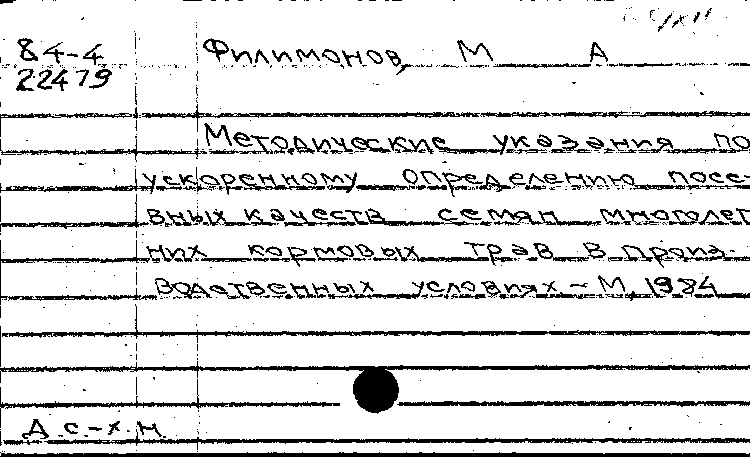 84-4 Филимонов, М А
22479
Методические указания по
ускоренному определению посе-
вных качеств семян многолет
них кормовых трав в произ-
водственных условиях - М, 1984
Д.с.-х.н.